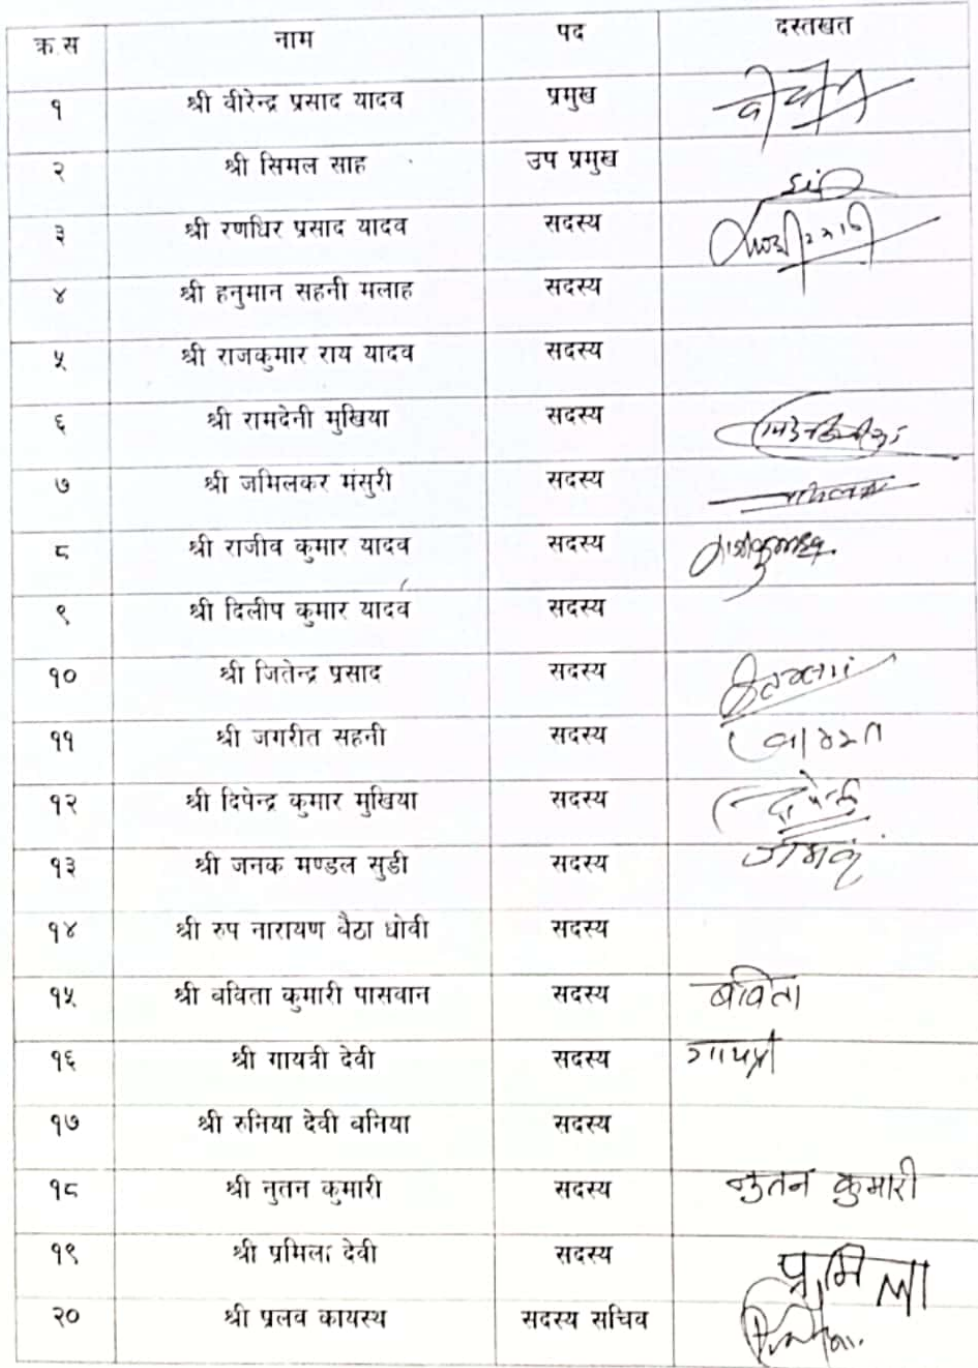 क्र.स नाम पद दस्तखत
१ श्री वीरेन्द्र प्रसाद यादव प्रमुख
२ श्री सिमल साह उप प्रमुख
३ श्री रणधिर प्रसाद यादव सदस्य
४ श्री हनुमान सहनी मलाह सदस्य
५ श्री राजकुमार राय यादव सदस्य
६ श्री रामदेनी मुखिया सदस्य
७ श्री जमिलकर मंसुरी सदस्य
८ श्री राजीव कुमार यादव सदस्य
९ श्री दिलीप कुमार यादव सदस्य
१० श्री जितेन्द्र प्रसाद सदस्य
११ श्री जगरीत सहनी सदस्य
१२ श्री दिपेन्द्र कुमार मुखिया सदस्य
१३ श्री जनक मण्डल सुडी सदस्य
१४ श्री रुप नारायण बैठा धोवी सदस्य
१५ श्री वविता कुमारी पासवान सदस्य बविता
१६ श्री गायत्री देवी सदस्य गायत्री
१७ श्री रुनिया देवी वनिया सदस्य
१८ श्री नुतन कुमारी सदस्य नुतन कुमारी
१९ श्री प्रमिला देवी सदस्य प्रमिला
२० श्री प्रलव कायस्थ सदस्य सचिव